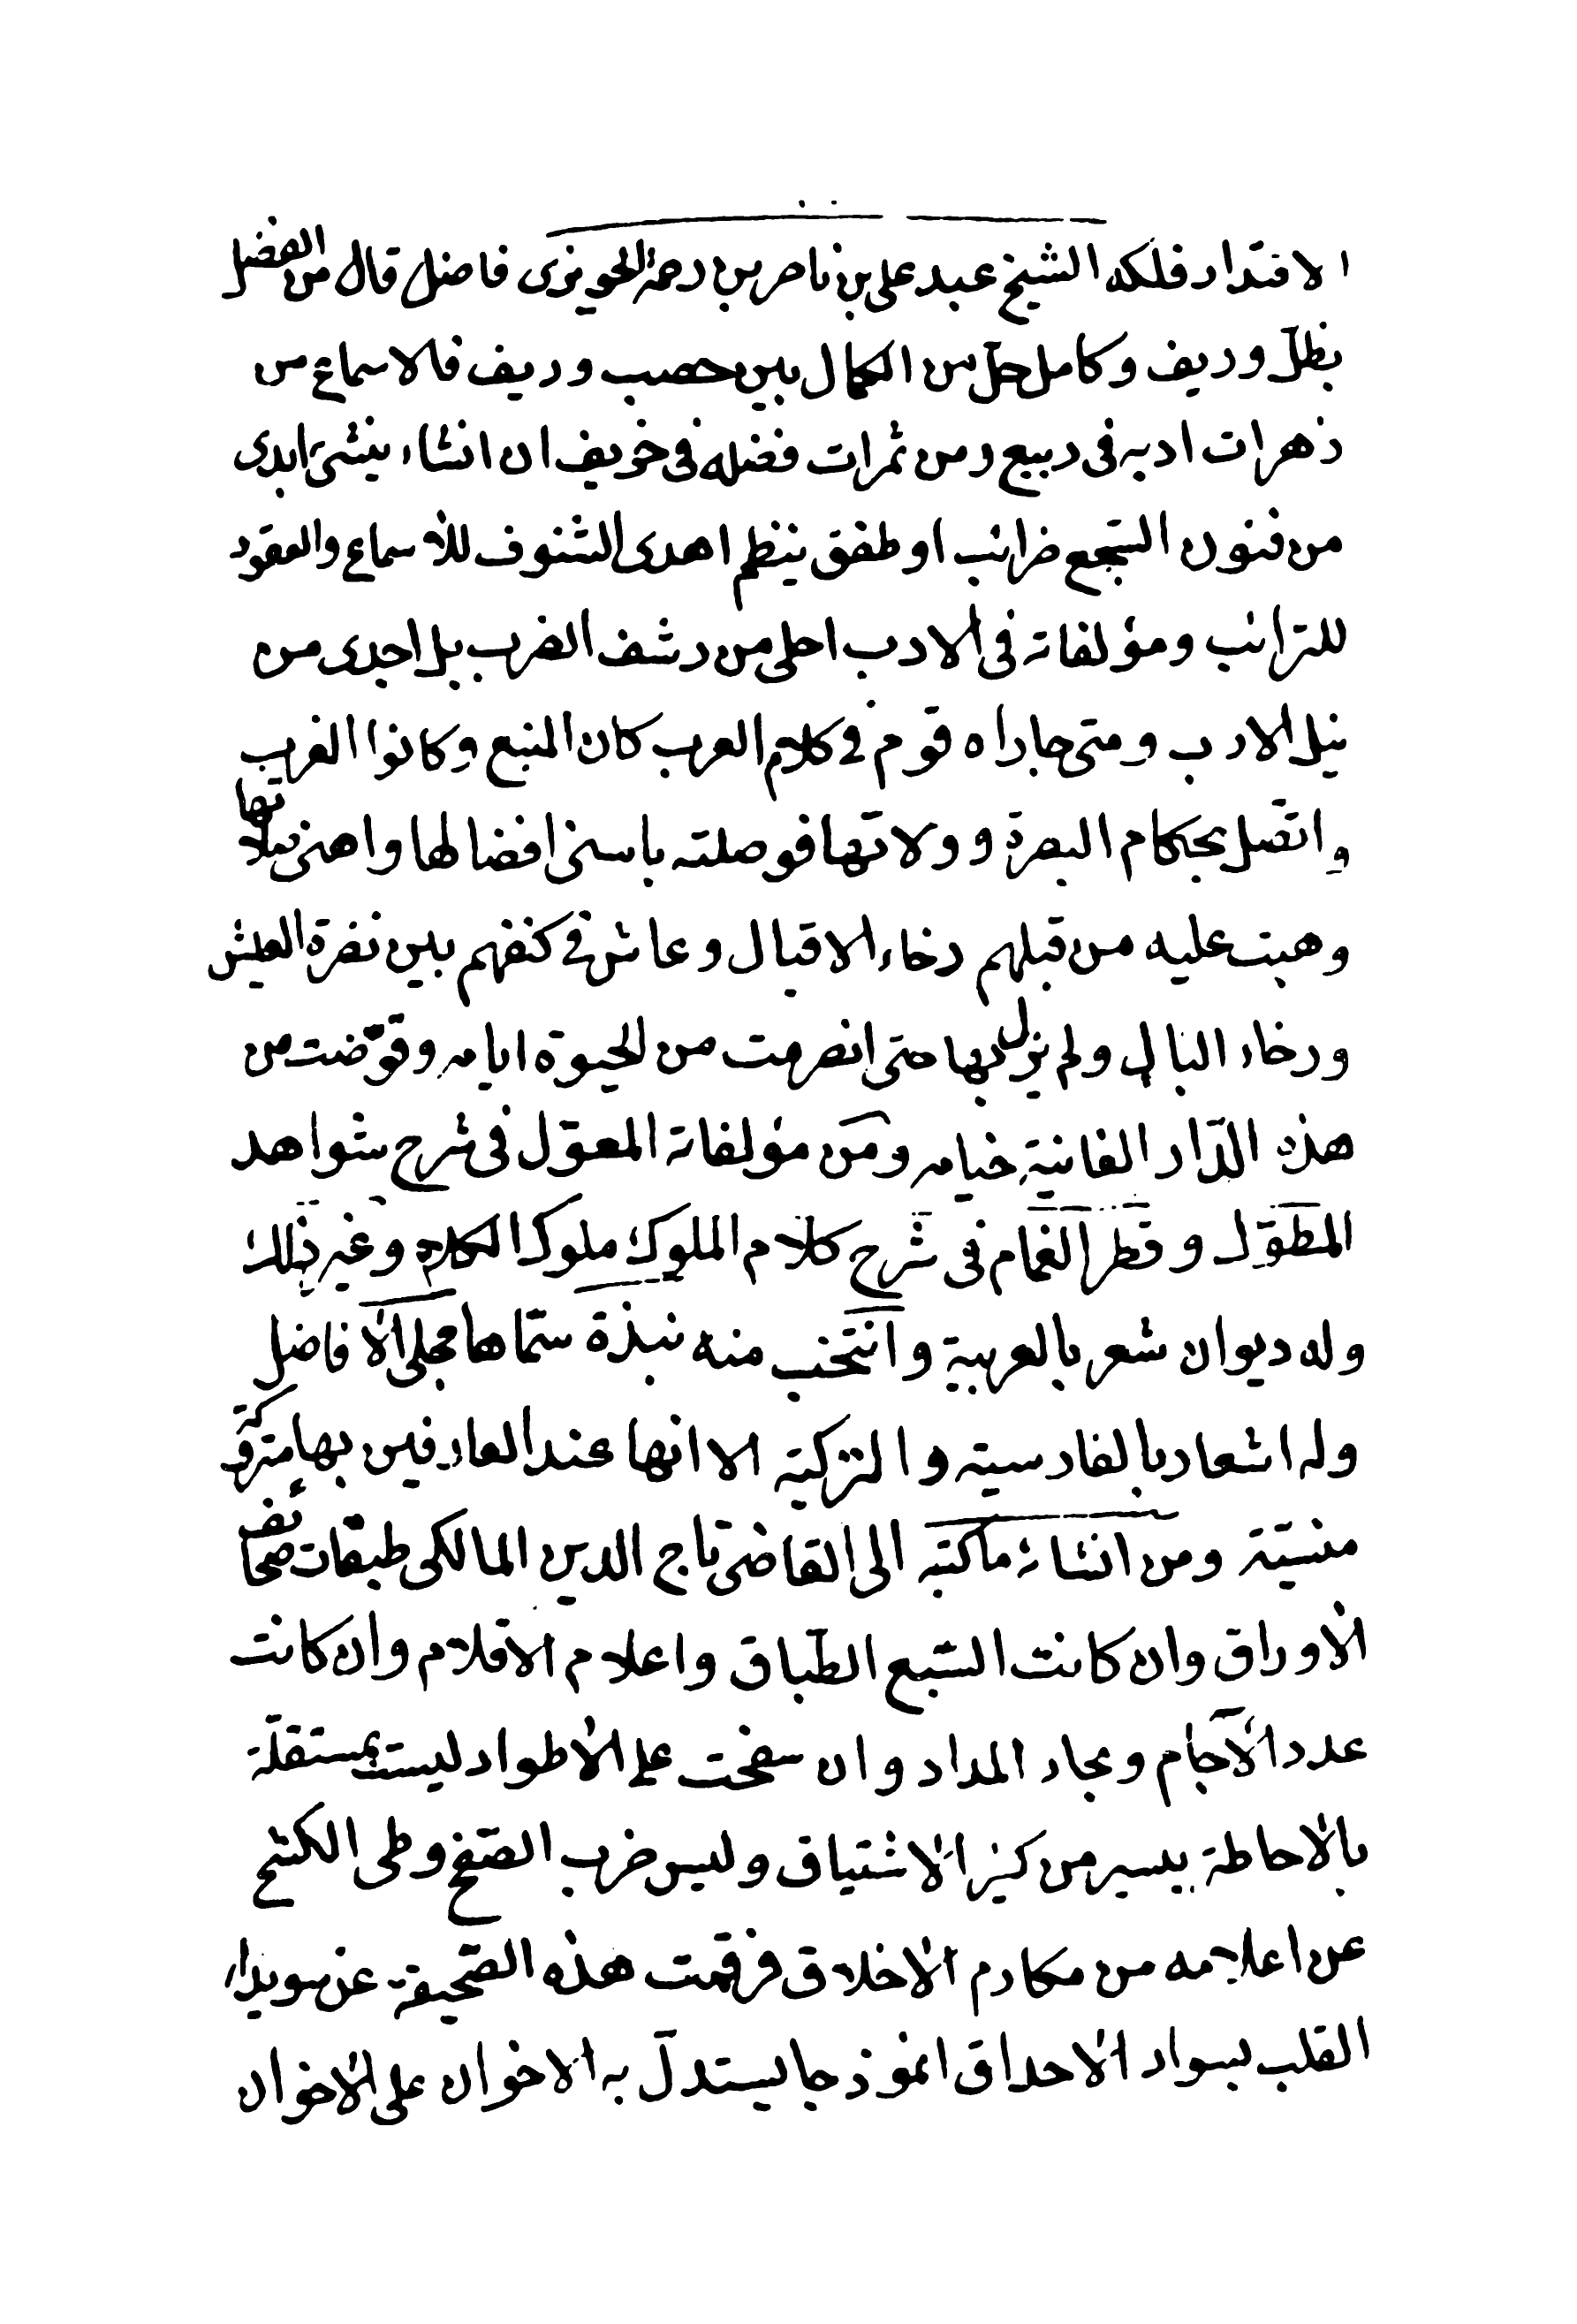 الاقتدار فلكه الشيخ عبد على بن ناصر بن رحمة الحويزى فاضل قال من الفضل
بظلّ وريف وكامل حلّ من الكمال بين خصب وريف فالاسماع من
زهرات ادبه فى ربيع ومن ثمرات فضله فى خريف ان انشاء ينشئ ابدى
من فنون السّجع ضرائب او طفق ينظم اهدى الشنوف للأسماع والعقود
للترائب ومؤلفاته فى الادب احلى من رشف الضرب بل اجدى من
نيل الارب ومتى جاراه قوم فى كلام العرب كان النبع وكانوا الغرب
واتصل بحكام البصرة وولاتها فوصلته باسنى افضالها واهنى نيلاتها
وهبت عليه من قبلهم رخاء الاقبال وعاش فى كنفهم بين نضرة العيش
ورخاء البال ولم يزل بها حتى انصرمت من الحيوة ايامه وقوّضت من
هذه الدّار الفانية خيامه ومن مؤلفاته المعوّل فى شرح شواهد
المطوّل وقطر الغمام فى شرح كلام الملوك ملوك الكلام وغير ذلك
وله ديوان شعر بالعربية وانتخب منه نبذة سمّاها مجلى الافاضل
وله اشعار بالفارسية والتركية الا انها عند العارفين بها متروكة
منسيّة ومن انشائه ما كتبه الى القاضى تاج الدين المالكى طبقات صحائف
الأوراق وان كانت السّبع الطّباق واعلام الاقلام وان كانت
عدد الآجام وبحار المداد وان سفحت على الأطواد ليست بمستقلّة
بالأحاطة بيسير من كثير الاشتياق وليس ضرب الصّفح وطى الكشح
عن اعلامه من مكارم الأخلاق فرقمت هذه الصّحيفة عن سويداء
القلب بسواد الأحداق انموذجا يستدلّ به الاخوان على الأخوان